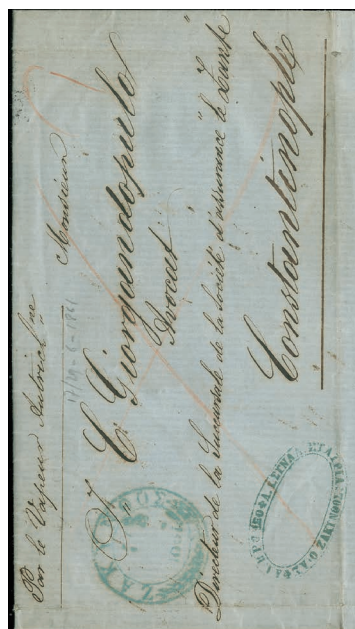 Par le Vapeur Autrichne
17/29-6-1861
Monsieur
Dr C. Giorgandopulo
Avocat
Directeur de la Succursale de la Société d'assurance "le Levant"
Constantinople